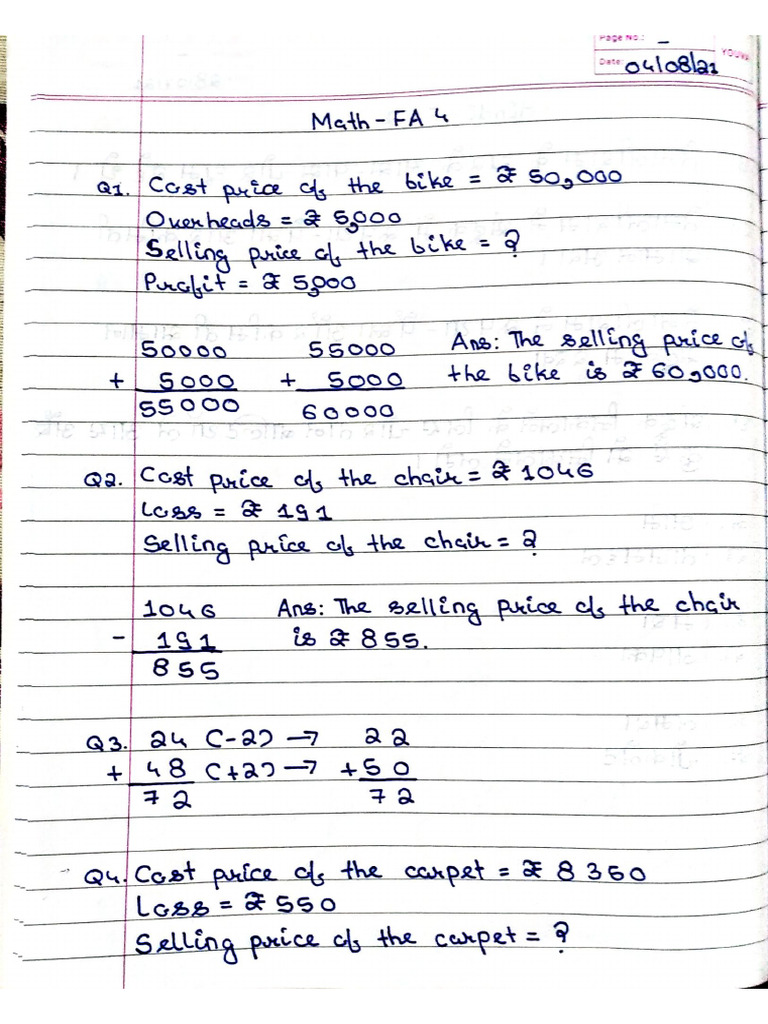 Page No.: -
Date: 04/08/21
YOUVA
Math - FA 4
Q1. Cost price of the bike = ₹ 50,000
Overheads = ₹ 5,000
Selling price of the bike = ?
Profit = ₹ 5,000
50000 55000 Ans: The selling price of
+ 5000 + 5000 the bike is ₹ 60,000.
55000 60000
Q2. Cost price of the chair = ₹ 1046
Loss = ₹ 191
Selling price of the chair = ?
1046 Ans: The selling price of the chair
- 191 is ₹ 855.
855
Q3. 24 (-2) → 22
+ 48 (+2) → +50
72 72
Q4. Cost price of the carpet = ₹ 8360
Loss = ₹ 550
Selling price of the carpet = ?